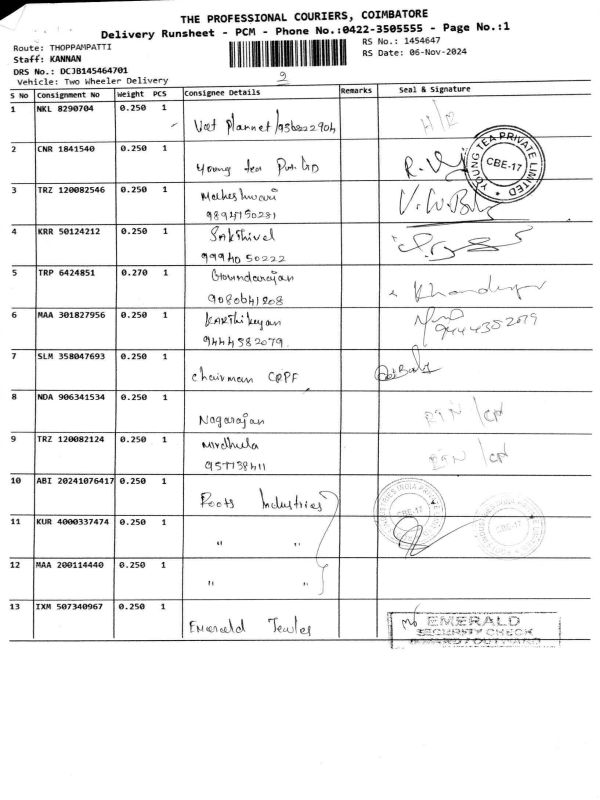 THE PROFESSIONAL COURIERS, COIMBATORE
Delivery Runsheet - PCM - Phone No.:0422-3505555 - Page No.:1
Route: THOPPAMPATTI
RS No.: 1454647
Staff: KANNAN
RS Date: 06-Nov-2024
DRS No.: DCJB145464701
Vehicle: Two Wheeler Delivery
S No Consignment No Weight PCS Consignee Details Remarks Seal & Signature
1 NKL 8290704 0.250 1
2 CNR 1841540 0.250 1
Young tea Pvt. LtD
YOUNG TEA PRIVATE LIMITED
CBE-17
3 TRZ 120082546 0.250 1
Maheshwari
4 KRR 50124212 0.250 1
SAKthivel
9994050222
5 TRP 6424851 0.270 1
Govindarajan
6 MAA 301827956 0.250 1
KARThikeyan
9444382079
9444382079
7 SLM 358047693 0.250 1
Chairman CRPF
8 NDA 906341534 0.250 1
Nagarajan
9 TRZ 120082124 0.250 1
Mirdhula
10 ABI 20241076417 0.250 1
Roots Industries
INDUSTRIES INDIA PRIVATE
CBE-17
11 KUR 4000337474 0.250 1
" "
12 MAA 200114440 0.250 1
" "
13 IXM 507340967 0.250 1
Emerald
EMERALD
SECURITY CHECK